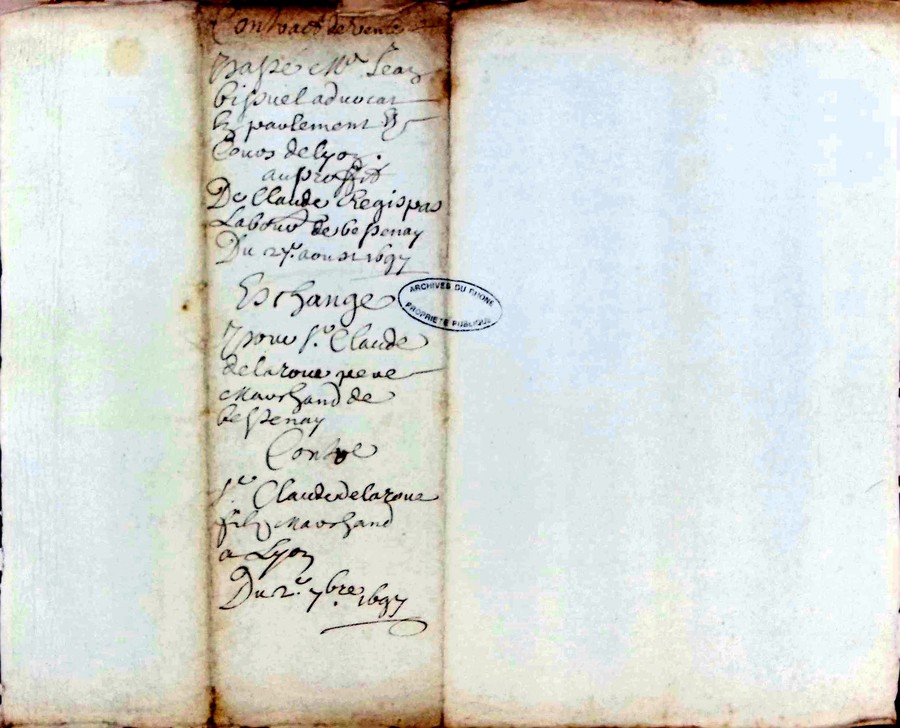 Contract de vente
Passé Mr. Jean
bissuel advocat
En parlement &
Cours de lyon.
au proffit
De Claude Regispas
Labour de bessenay
Du 27e. aoust 1697
Eschange
Pour sr. Claude
delaroue pere
Marchand de
bessenay
Contre
sr. Claude delaroue
filz Marchand
a Lyon
Du 2e. 7bre. 1697
ARCHIVES DU RHONE
PROPRIETE PUBLIQUE